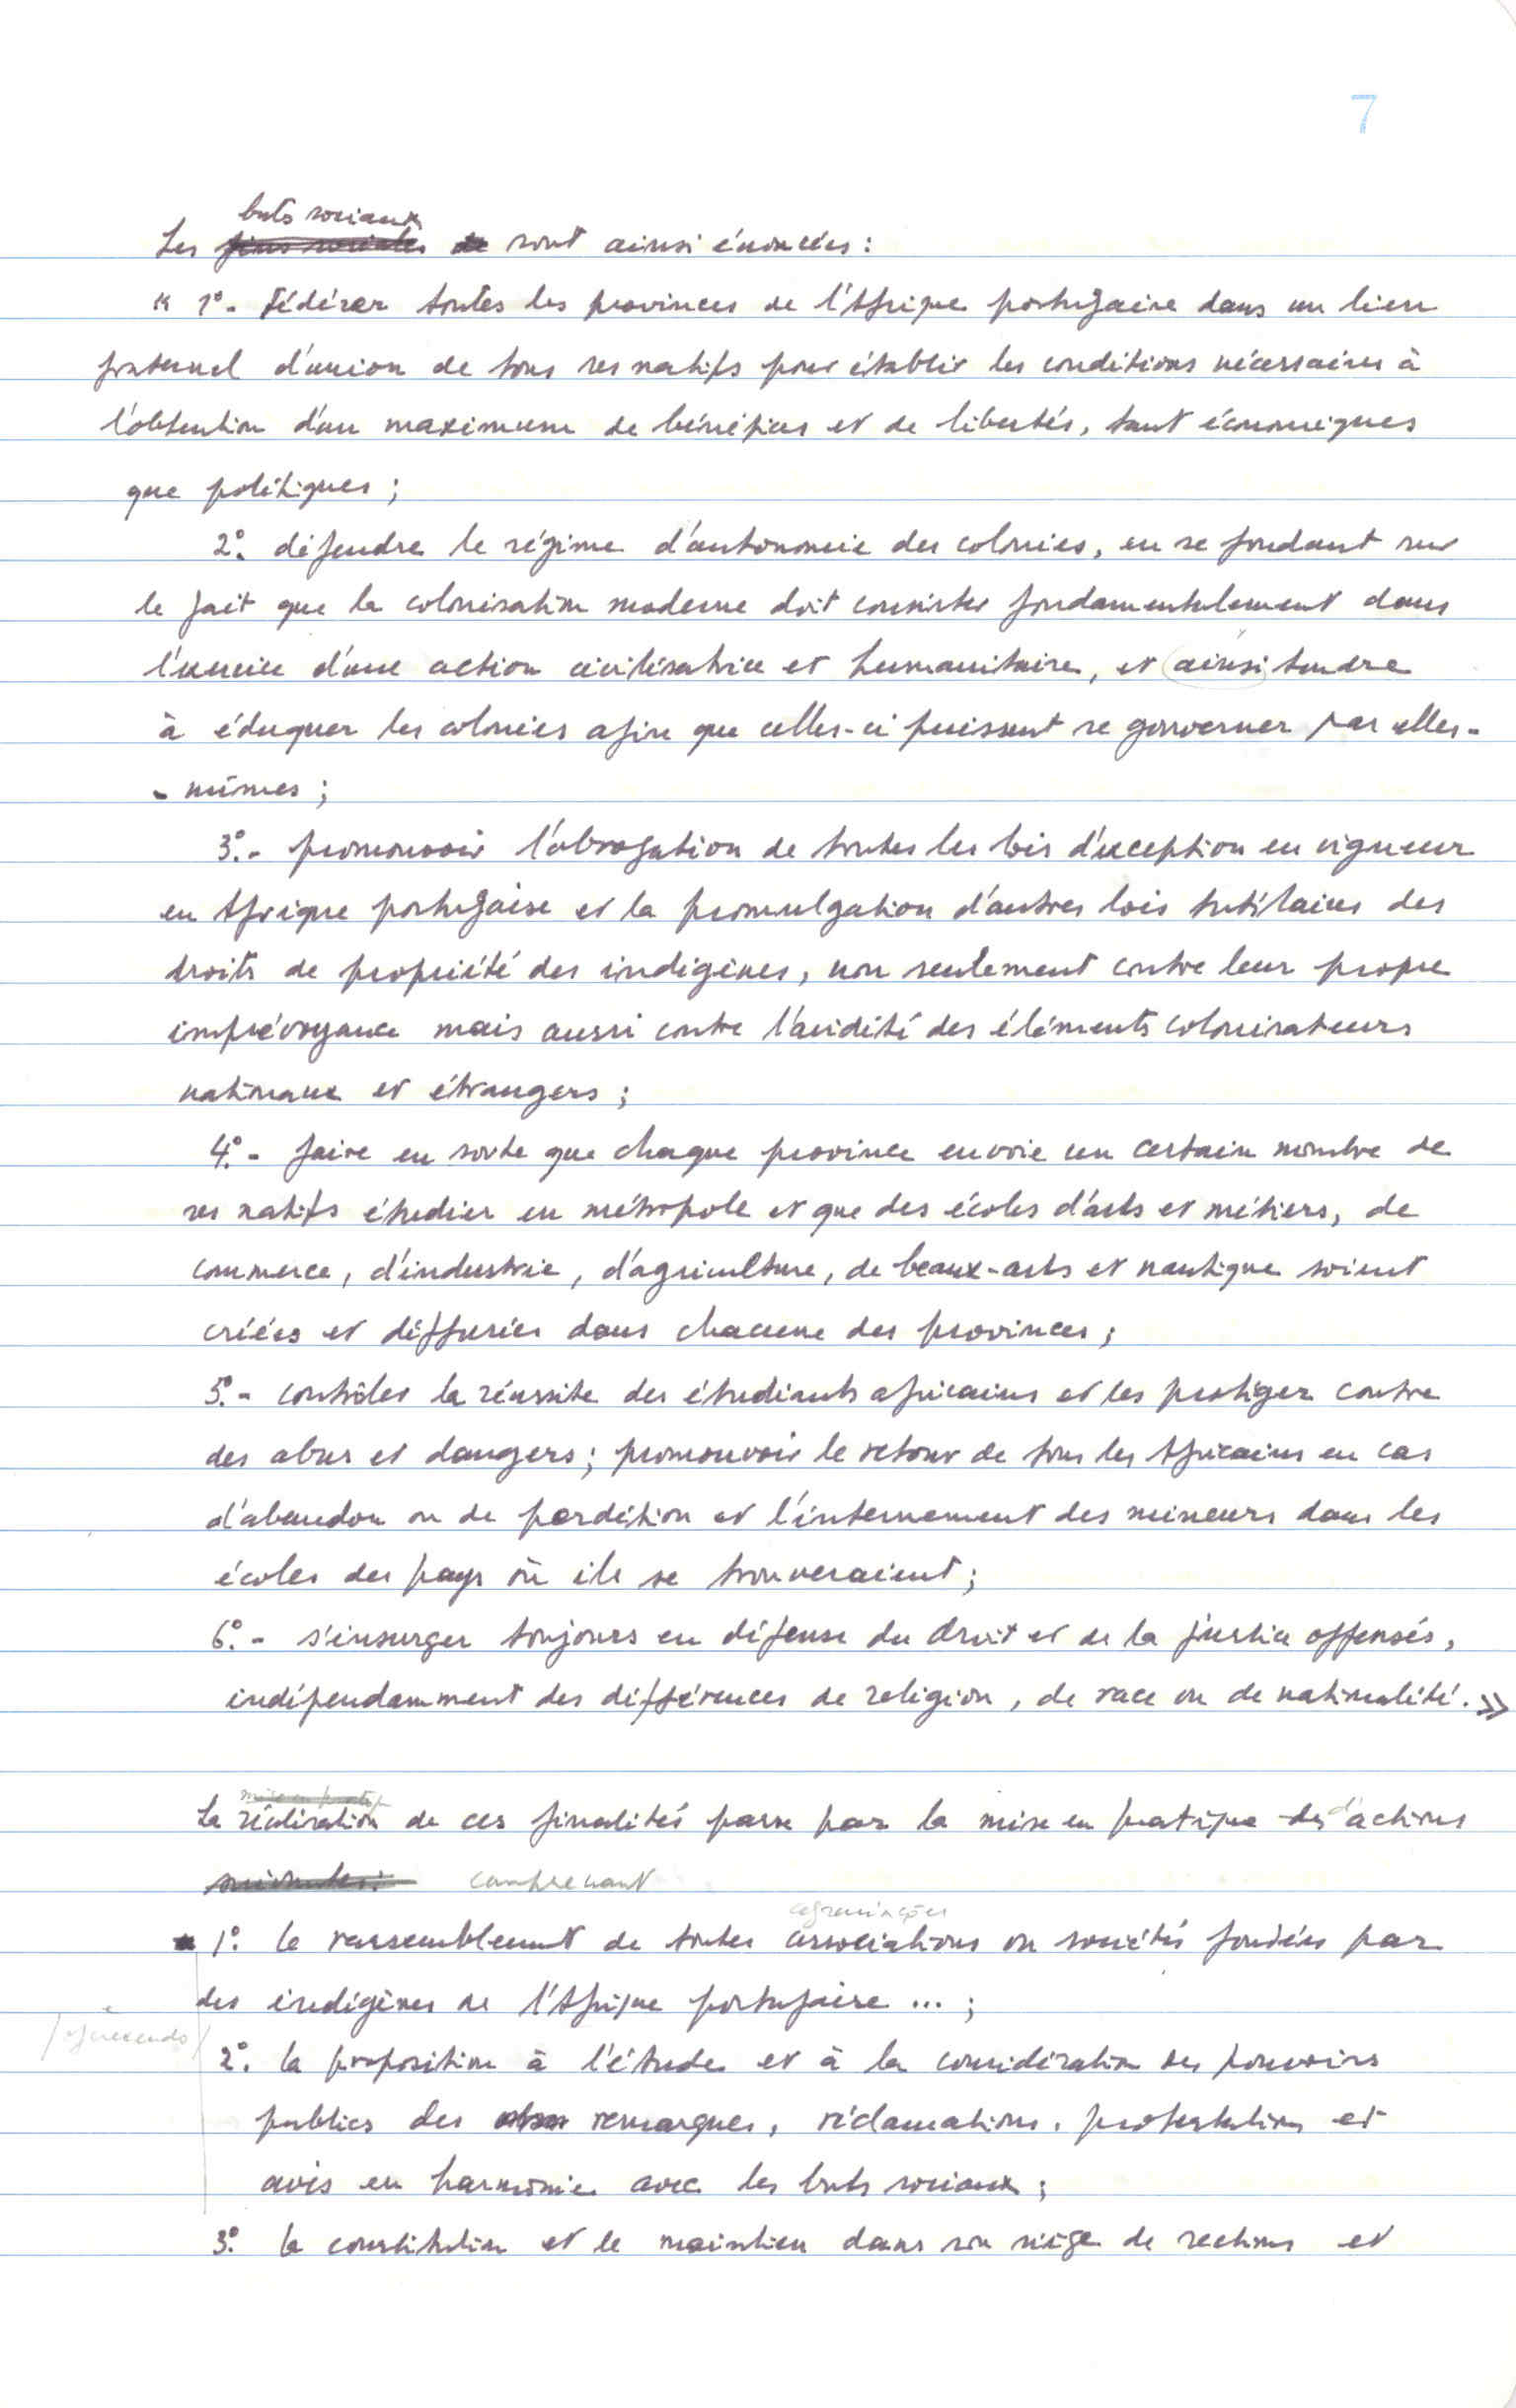 7
buts sociaux
Les fins sociales de sont ainsi énoncées :
« 1º- Fédérer toutes les provinces de l'Afrique portugaise dans un lien
fraternel d'union de tous ses natifs pour établir les conditions nécessaires à
l'obtention d'un maximum de bénéfices et de libertés, tant économiques
que politiques ;
2º. défendre le régime d'autonomie des colonies, en se fondant sur
le fait que la colonisation moderne doit consister fondamentalement dans
l'exercice d'une action civilisatrice et humanitaire, et ainsi tendre
à éduquer les colonies afin que celles-ci puissent se gouverner par elles-
- mêmes ;
3º.- promouvoir l'abrogation de toutes les lois d'exception en vigueur
en Afrique portugaise et la promulgation d'autres lois tutélaires des
droits de propriété des indigènes, non seulement contre leur propre
imprévoyance mais aussi contre l'avidité des éléments colonisateurs
nationaux et étrangers ;
4º.- faire en sorte que chaque province envoie un certain nombre de
ses natifs étudier en métropole et que des écoles d'arts et métiers, de
commerce, d'industrie, d'agriculture, de beaux-arts et nautique soient
créées et diffusées dans chacune des provinces ;
5º.- contrôler la réussite des étudiants africains et les protéger contre
des abus et dangers ; promouvoir le retour de tous les Africains en cas
d'abandon ou de perdition et l'internement des mineurs dans les
écoles des pays où ils se trouveraient ;
6º.- s'insurger toujours en défense du droit et de la justice offensés,
indépendamment des différences de religion, de race ou de nationalité. »
mise en pratique
La réalisation de ces finalités passe par la mise en pratique des d'actions
suivantes : comprenant
agremiações
1º. le rassemblement de toutes associations ou sociétés fondées par
des indigènes de l'Afrique portugaise ... ;
2º. la proposition à l'étude et à la considération des pouvoirs
publics des remarques, réclamations, protestations et
avis en harmonie avec les buts sociaux ;
3º. la constitution et le maintien dans son siège de sections et